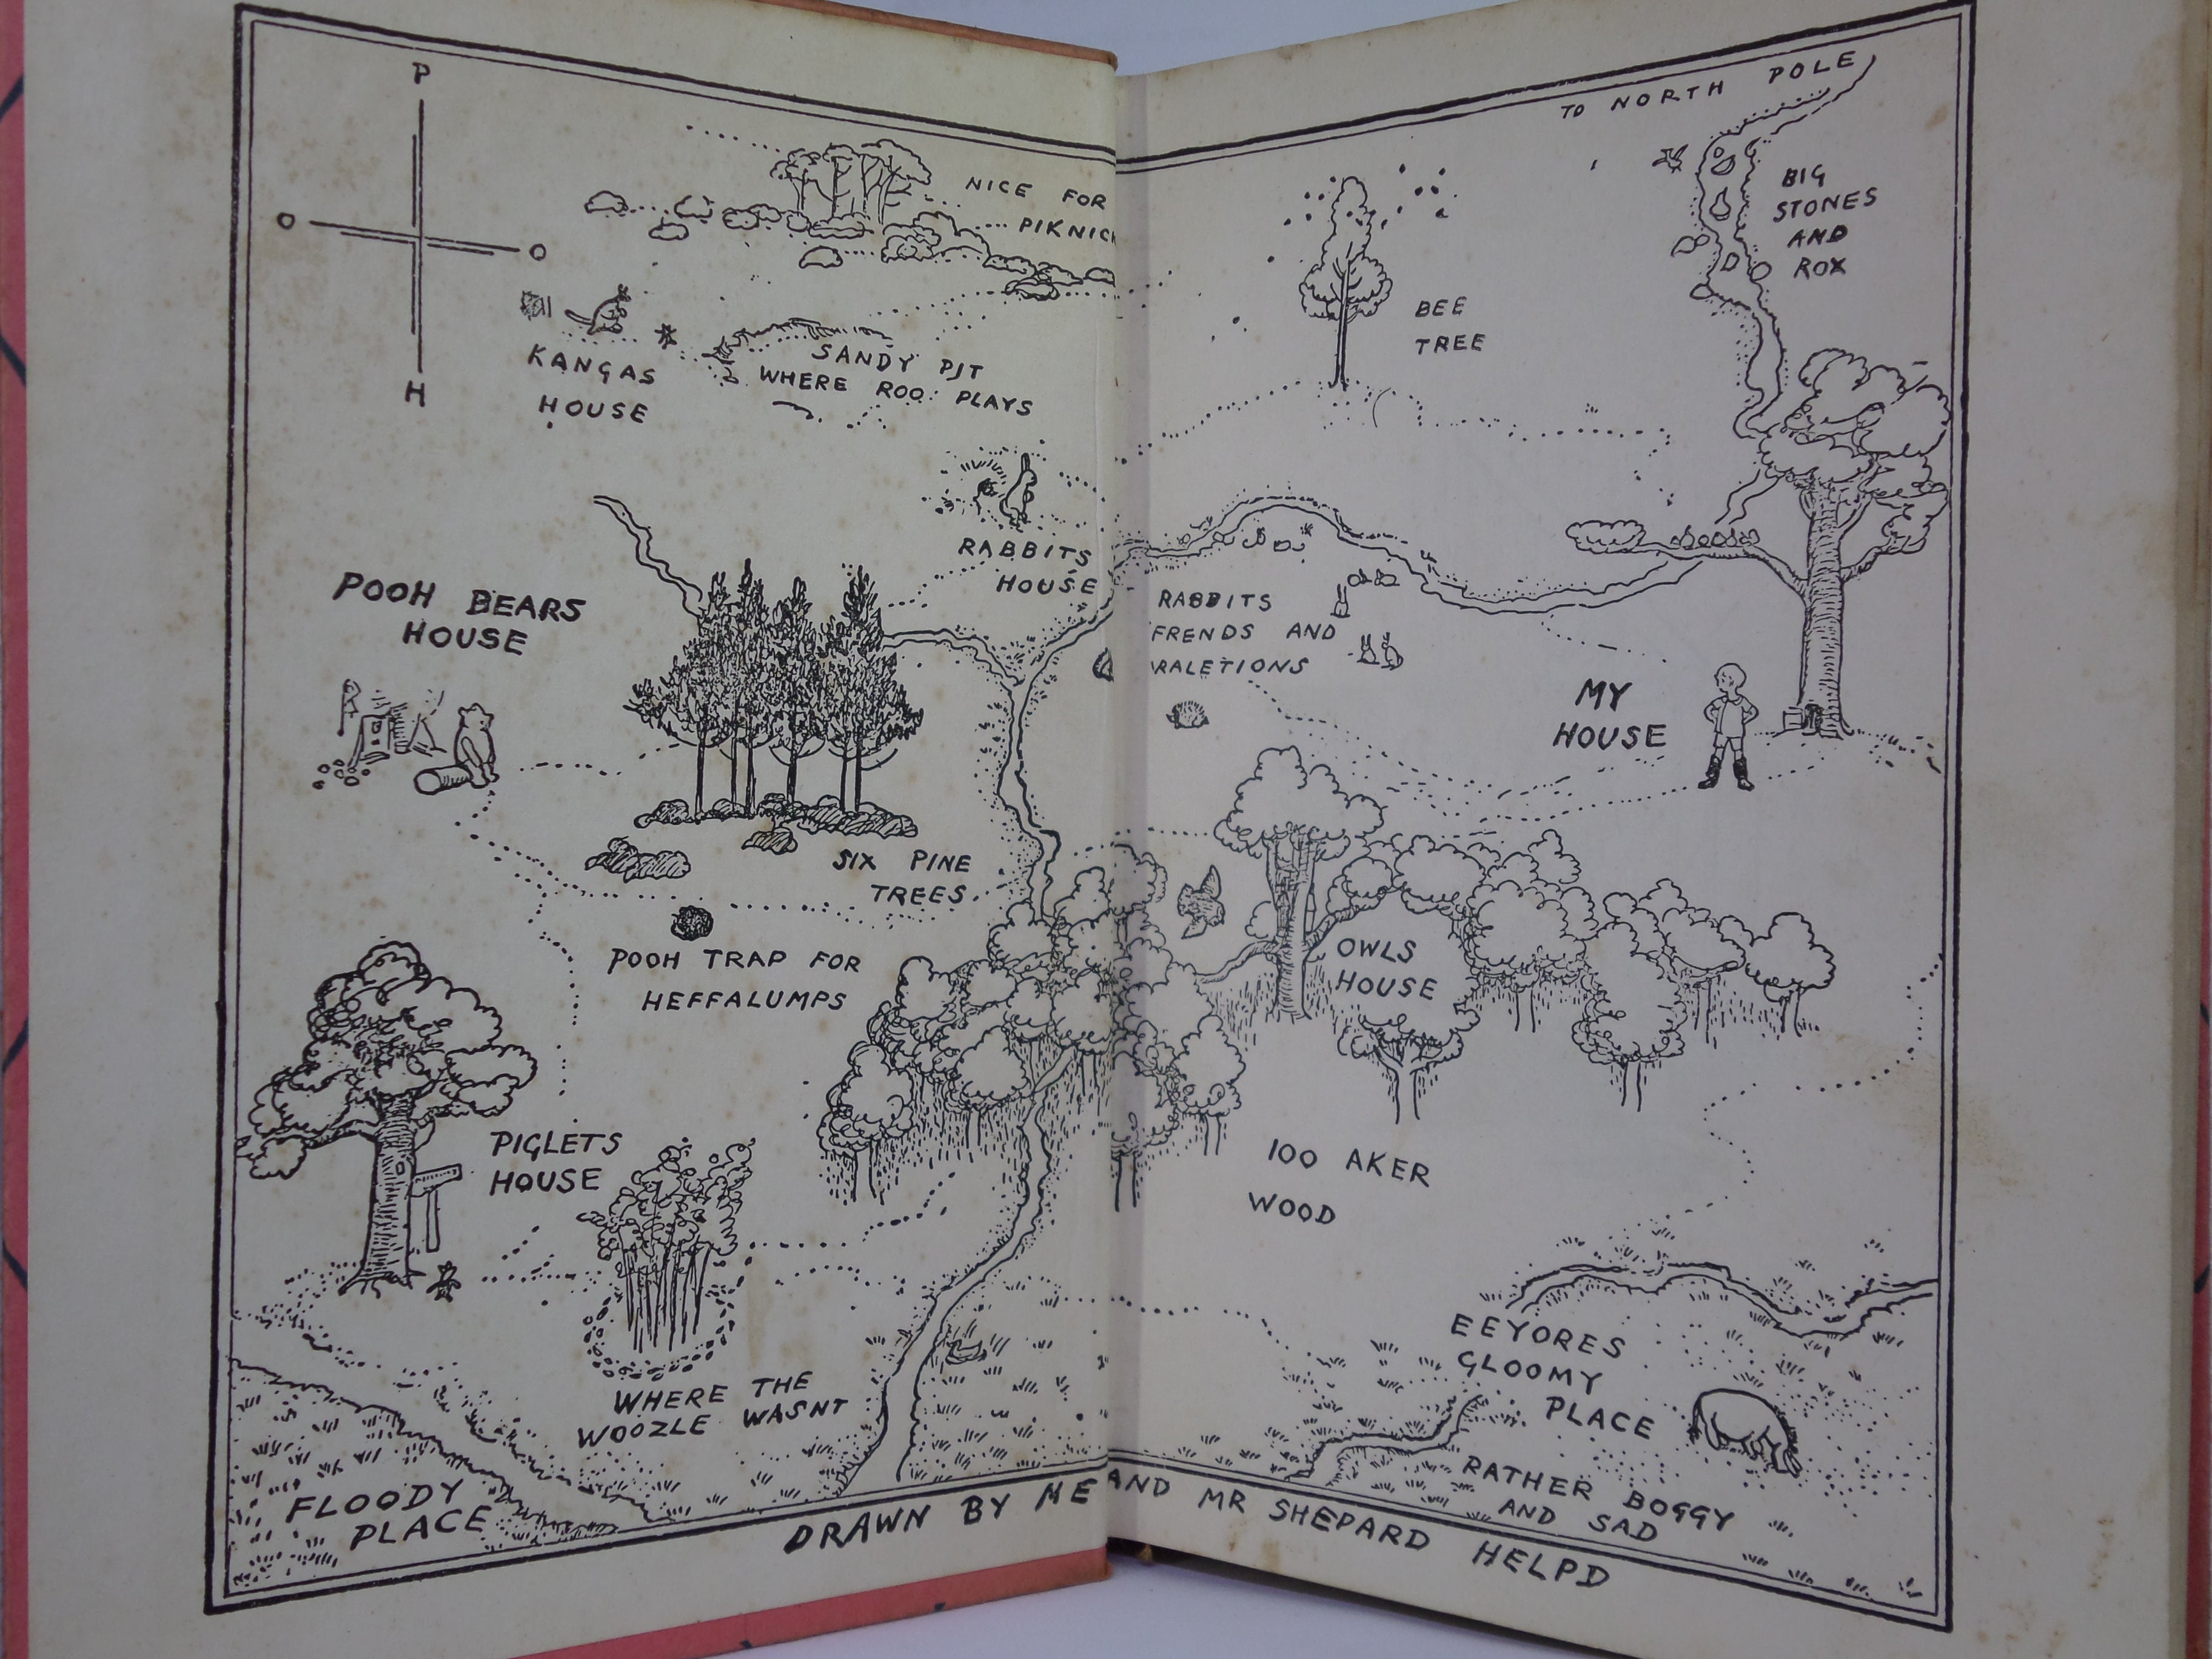 P
O
O
H
NICE FOR
PIKNICK
KANGAS
HOUSE
SANDY PIT
WHERE ROO PLAYS
RABBITS
HOUSE
POOH BEARS
HOUSE
SIX PINE
TREES
POOH TRAP FOR
HEFFALUMPS
PIGLETS
HOUSE
WHERE THE
WOOZLE WASNT
FLOODY
PLACE
TO NORTH POLE
BIG
STONES
AND
ROX
BEE
TREE
RABBITS
FRENDS AND
RALETIONS
MY
HOUSE
OWLS
HOUSE
100 AKER
WOOD
EEYORES
GLOOMY
PLACE
RATHER BOGGY
AND SAD
DRAWN BY ME AND MR SHEPARD HELPD